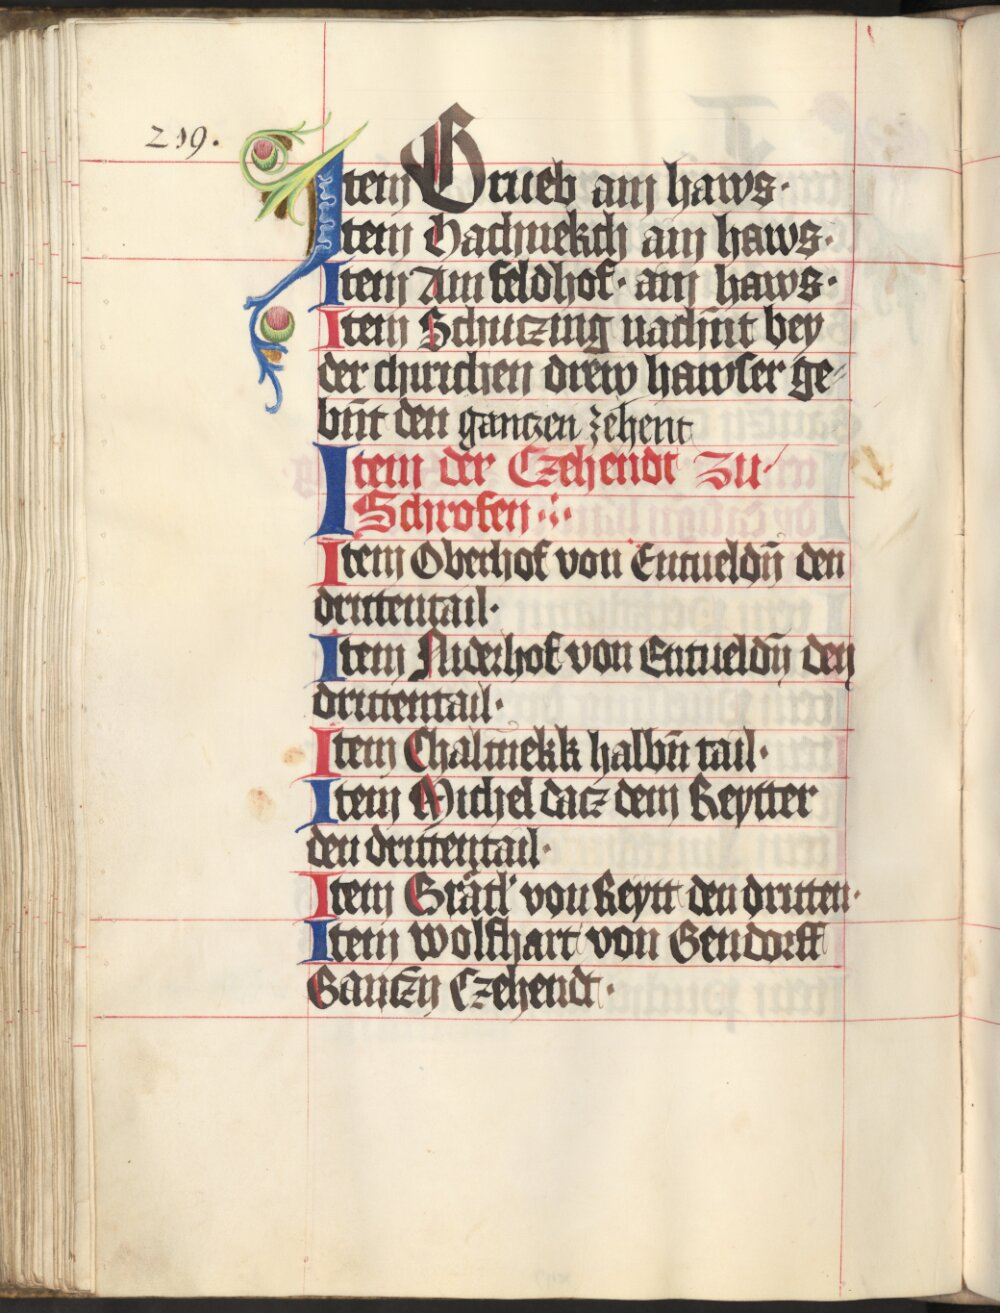 219.
Item Grueb ain haws.
Item Hachnekch ain haws.
Item Am feldhof. ain haws.
Item Schuczing nachnt bey
der churchen drew hawser ge
bnt den ganczen zehent
Item der Czehendt zu
Schrofen
Item Oberhof von Entueldn̄ den
drittentail.
Item Niderhof von Entueldn̄ den
drittentail.
Item Chalmekk halbn̄ tail.
Item Michel dacz dem Reytter
den drittentail.
Item Grätl von Reytt den dritten.
Item Wolfhart von Gendorff
Ganczn Czehendt.